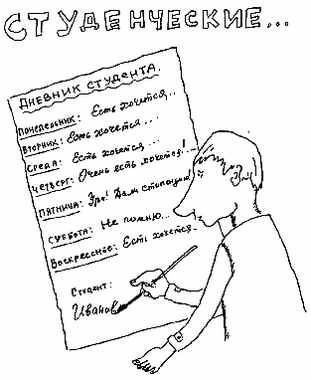 СТУДЕНЧЕСКИЕ...
ДНЕВНИК СТУДЕНТА.
ПОНЕДЕЛЬНИК: Есть хочется...
ВТОРНИК: Есть хочется...
СРЕДА: Есть хочется...
ЧЕТВЕРГ: Очень есть хочется!..
ПЯТНИЦА: Ура! Дали стипендию!
СУББОТА: Не помню...
ВОСКРЕСЕНЬЕ: Есть хочется..
Студент:
Иванов